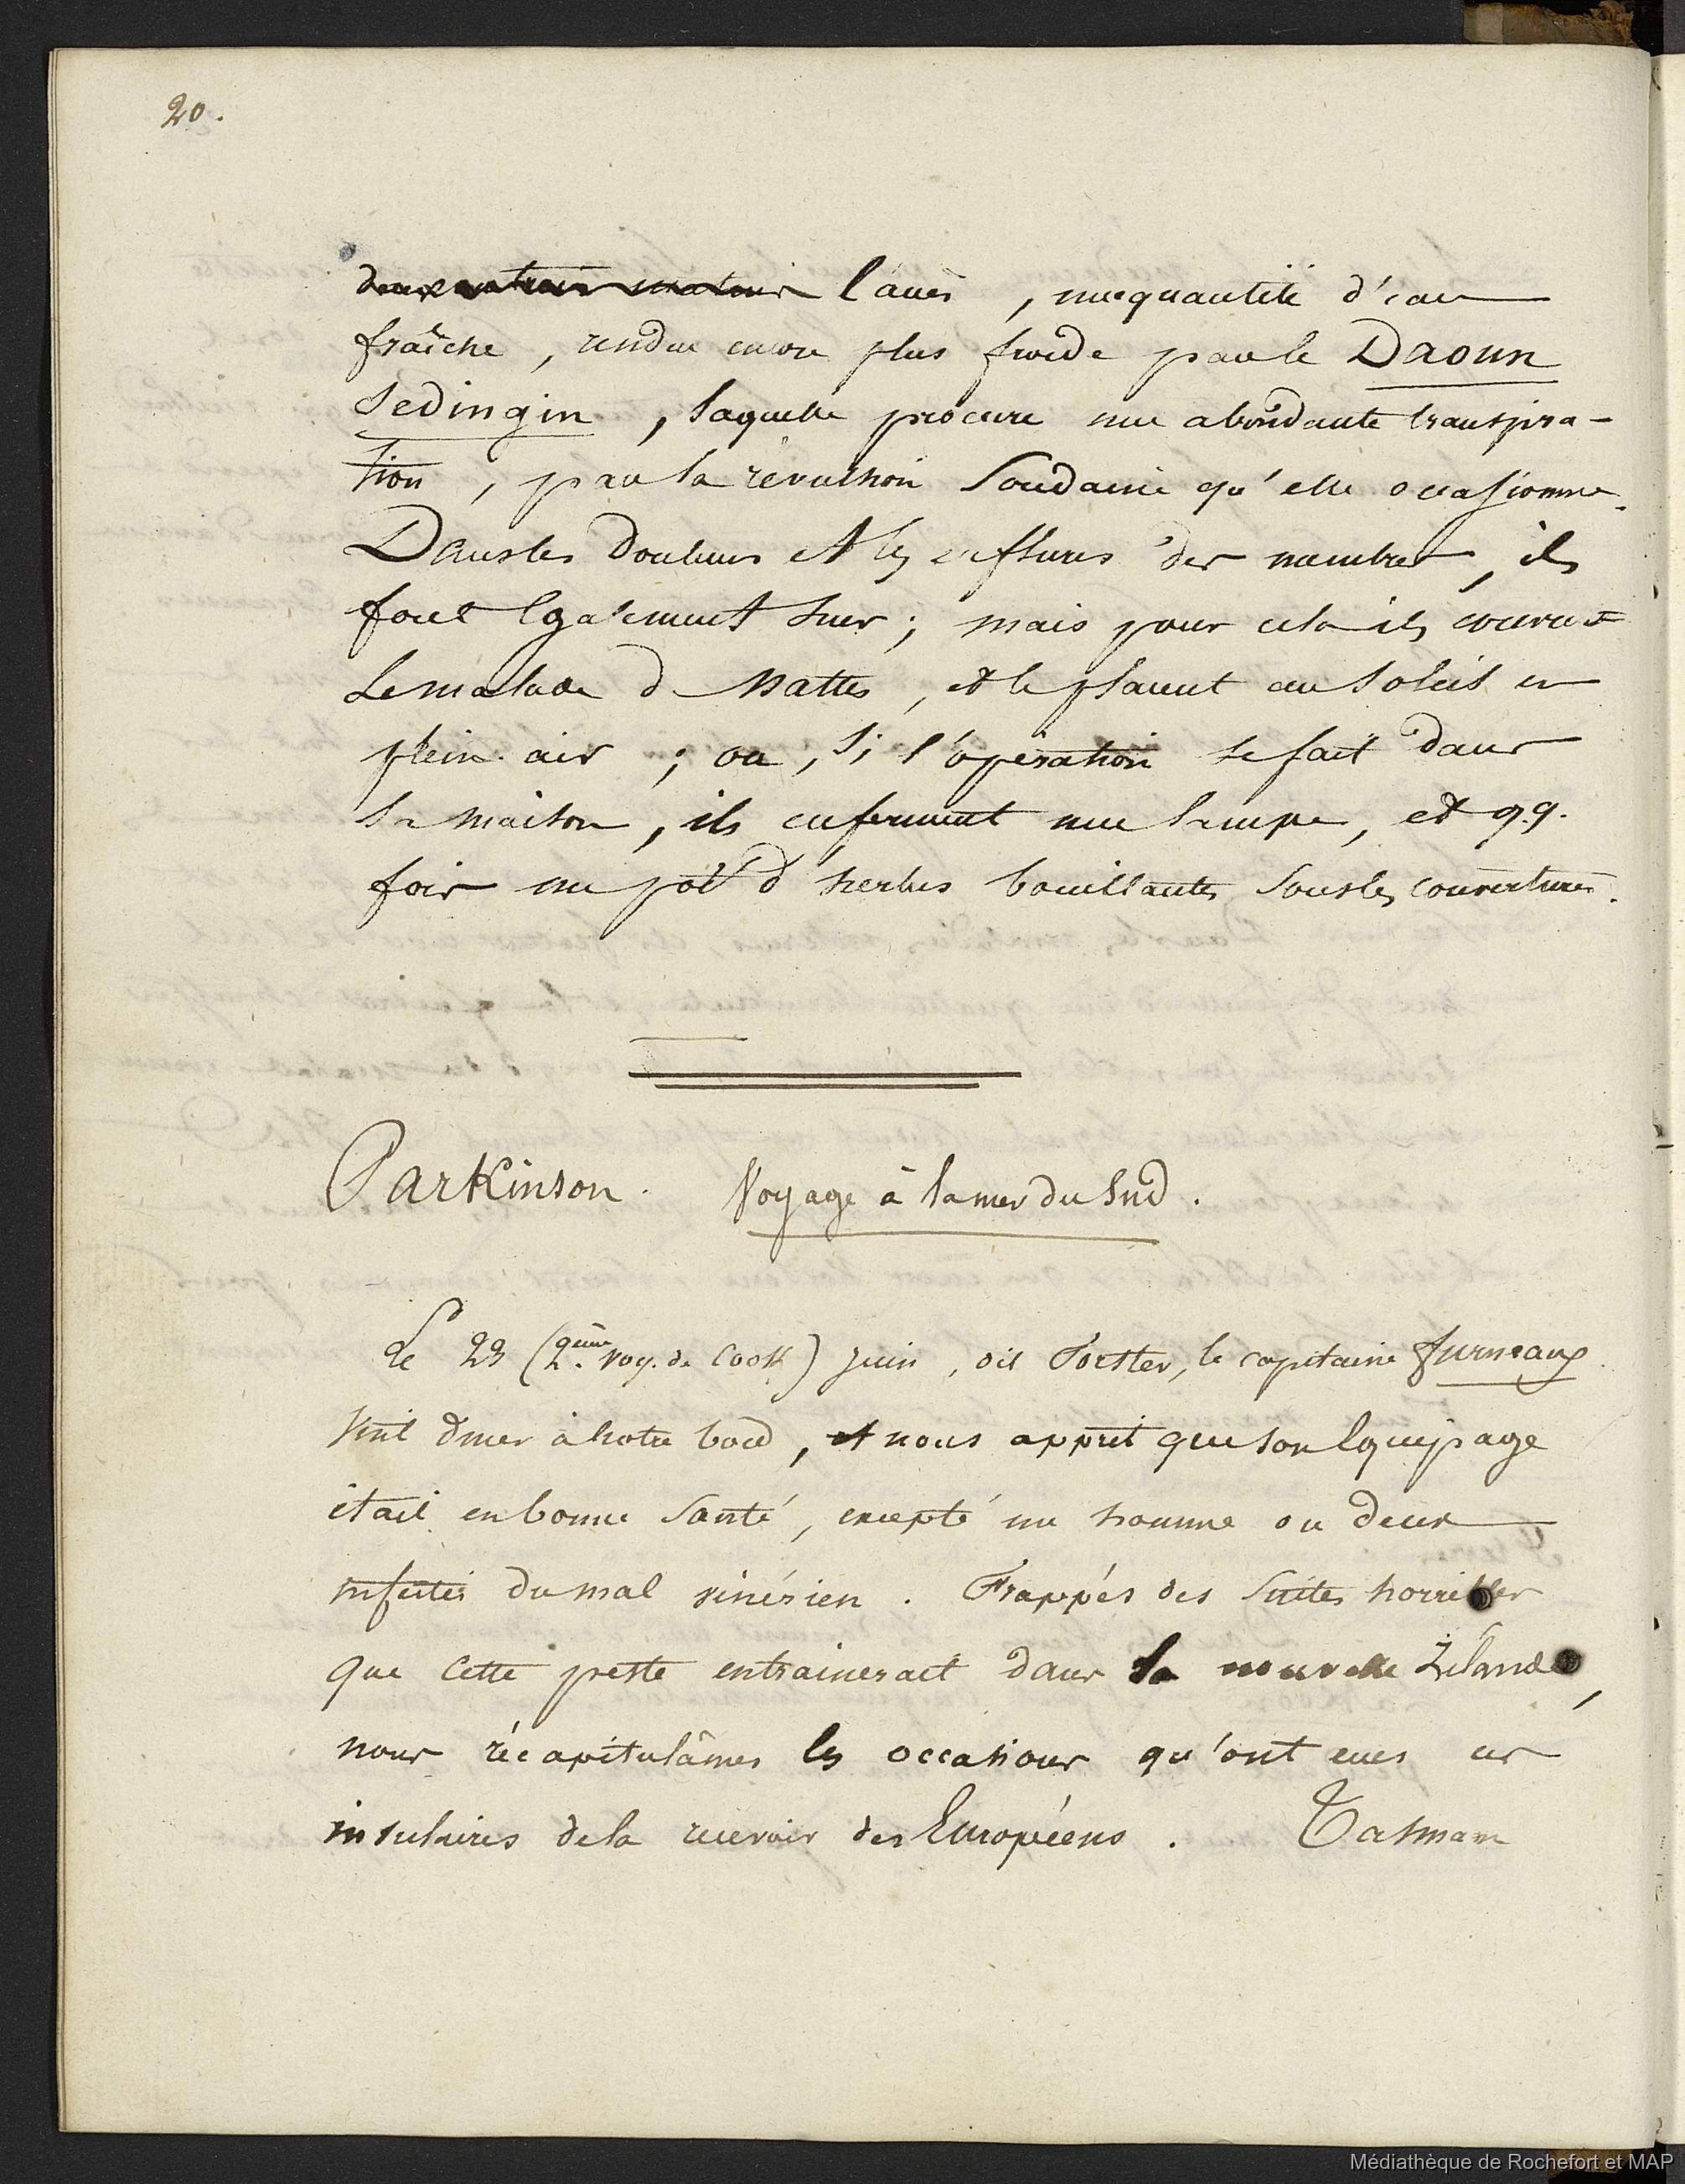 20.
deux ou trois matins l'accès, une quantité d'eau
fraîche, rendue encore plus froide par le Daoun
Sedingin, laquelle procure une abondante transpira-
tion, par la révulsion soudaine qu'elle occasionne.
Dans les douleurs et les enflures des membres, ils
font également suer; mais pour cela ils couvrent
le malade de nattes, et le placent au soleil en
plein air; ou, si l'opération se fait dans
la maison, ils enferment une lampe, et q.q.
fois un pot d'herbes bouillantes sous les couvertures.
Parkinson. Voyage à la mer du Sud.
Le 23 (2.ème voy. de Cook) juin, dit Forster, le capitaine furneaux
vint diner à notre bord, et nous apprit que son équipage
était en bonne santé, excepté un homme ou deux
infectés du mal vénérien. Frappés des suites horribles
que cette peste entrainerait dans la nouvelle Zélande,
nous récapitulâmes les occasions qu'ont eues ces
insulaires de la recevoir des Européens. Tasman
Médiathèque de Rochefort et MAP